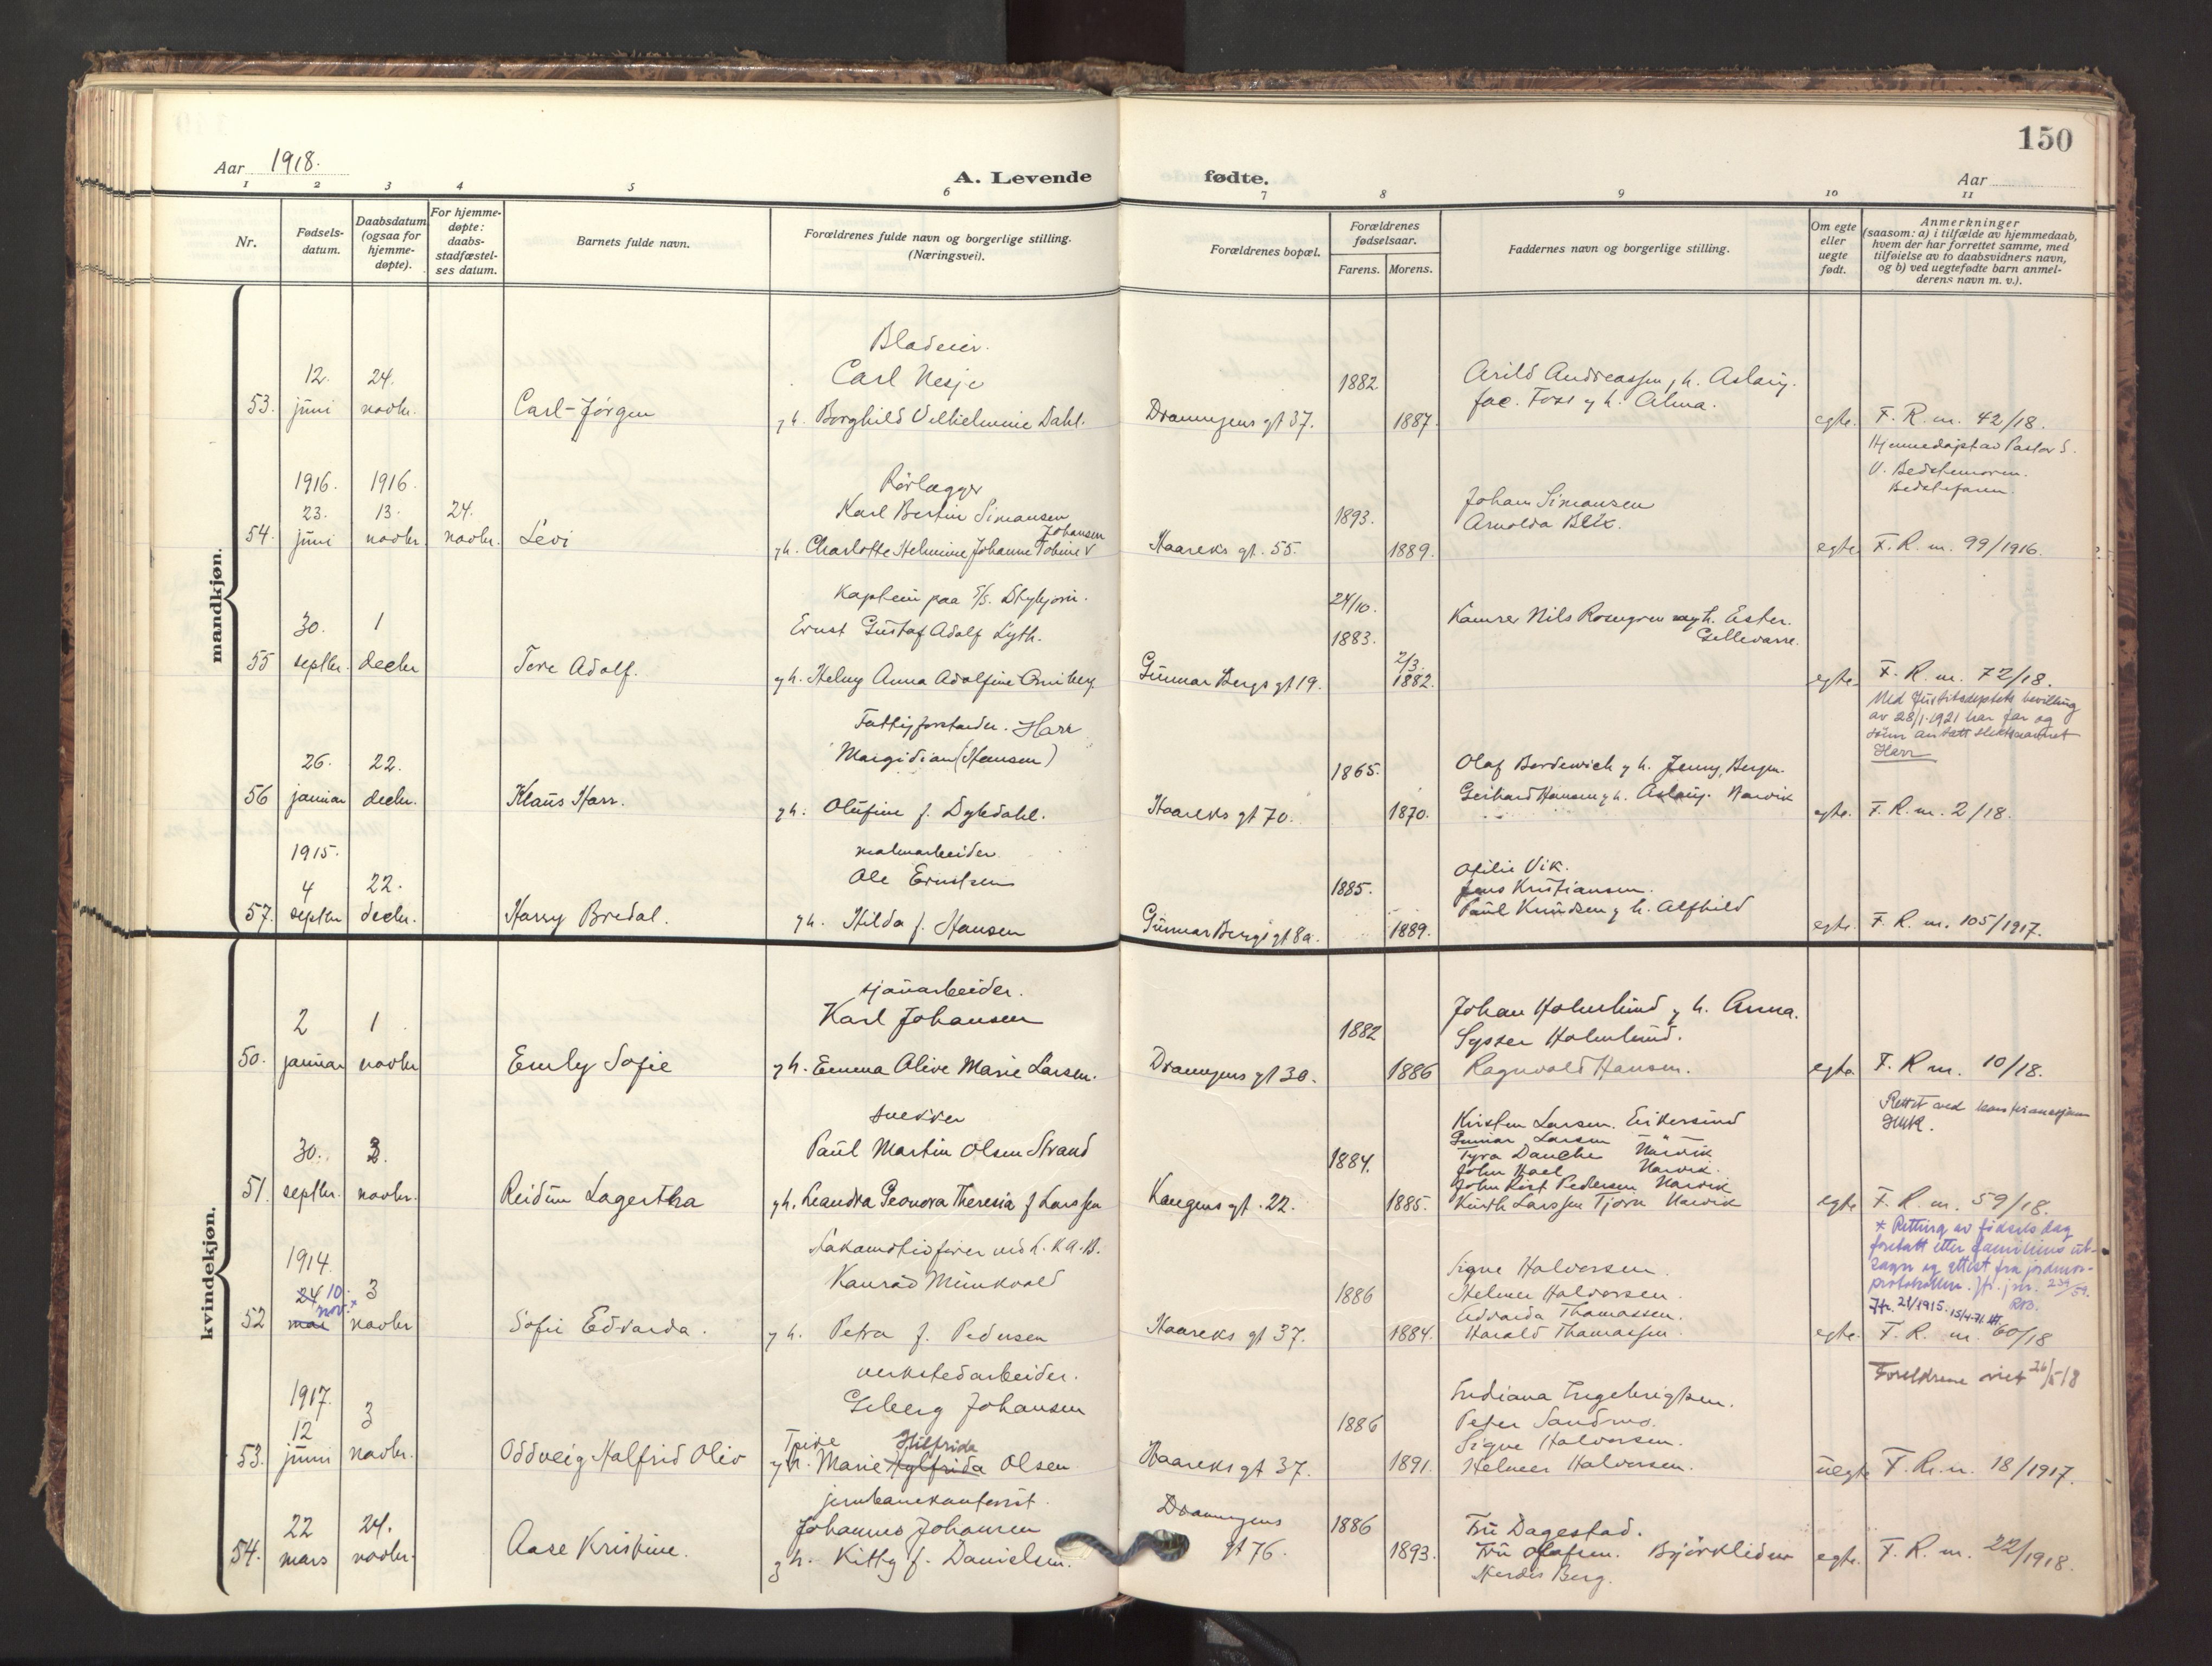 150
Aar 1918.
A. Levende fødte.
Aar
1 2 3 4 5 6 7 8 9 10 11
Nr.
Fødsels-
datum.
Daabsdatum
(ogsaa for
hjemme-
døpte).
For hjemme-
døpte:
daabs-
stadfæstel-
ses datum.
Barnets fulde navn.
Forældrenes fulde navn og borgerlige stilling.
(Næringsvei).
Forældrenes bopæl.
Forældrenes
fødselsaar.
Farens. Morens.
Faddernes navn og borgerlige stilling.
Om egte
eller
uegte
født.
Anmerkninger
(saasom: a) i tilfælde av hjemmedaab,
hvem der har forrettet samme, med
tilføielse av to daabsvidners navn,
og b) ved uegtefødte barn anmel-
derens navn m. v.).
mandkjøn.
53.
12.
juni
24.
novbr.
Carl-Jørgen
Bladeier.
Carl Nesje
g h. Borghild Vilhelmine Dahl.
Dronningens gt 37.
1882.
1887.
Arild Andreassen g h. Aslaug.
Jac. Foss g h. Alma.
egte.
F. R. m. 42/18.
54.
1916.
23.
juni
1916.
13.
novbr
24.
novbr.
Levi
Rørlægger
Karl Bertin Simonsen
Johansen
g h. Charlotte Helmine Johanne Tobine v
Haareks gt. 55.
1893.
1889.
Johan Simonsen
Arnolda Blix.
egte
Hjemmedøpt av Pastor S.
V. Bedstemoren.
Bedstefaren.
F. R. m. 99/1916.
55
30.
septbr.
1
decbr
Tore Adolf.
Kaptein paa S/S. Styrbjørn.
Ernst Gustaf Adolf Lyth.
g h. Helny Anna Adolfine
Gunnar Bergs gt 19.
24/10.
1883.
2/3.
1882.
Kamrer Nils Rosengren og h. Ester.
Gellevarre.
egte.
F. R. m. 72/18.
56
26.
januar
22.
decbr.
Klaus Harr.
Fattigforstander. Harr
Margidian (Hansen)
g h. Olufine f. Dybdahl.
Haareks gt 70.
1865.
1870.
Olaf Bordewich g h. Jenny, Bergen.
Gerhard Hansen g h. Aslaug. Narvik
egte.
Med Justitsdeptets bevilling
av 28/1-1921 har far og
sønn antatt slektsnavnet
Harr
F. R. m. 2/18.
57.
1915.
4
septbr
22.
decbr.
Harry Bredal.
malmarbeider.
Ole Erntsen
g h. Hilda f. Hansen
Gunnar Bergs gt 8a.
1885.
1889.
Otilie Vik.
Jens Kristiansen.
Paul Knudsen g h. Alfhild
egte.
F. R. m. 105/1917.
kvindekjøn.
50.
2
januar
1
novbr
Emly Sofie
sjauarbeider.
Karl Johansen
g h. Emma Olive Marie Larsen.
Dronningens gt 30.
1882
1886
Johan Holmlund g h. Anna.
Sysser Holmlund.
Ragnvald Hansen.
egte
F. R. m. 10/18.
51.
30.
septbr.
3.
novbr.
Reidun Lagertha
snekker
Paul Martin Olsen Strand
g h. Leandra Leonora Theresia f Larssen
Kongens gt. 22.
1884.
1885.
Kristen Larsen. Eikersund
Gunnar Larsen "
Tyra Danche Narvik
John Hael Narvik.
John Kist Pedersen Narvik
Kurth Larssen Tjörn Narvik
egte
Rettet ved konfirmasjonen
F. R. m. 59/18.
52
1914.
24 10.
nov. *
mai
3
novbr
Sofie Edvarda.
Lokomotivfører ved L. K. A. B.
Konrad Munkvold
g h. Petra f. Pedersen
Haareks gt 37.
1886
1884.
Signe Halvorsen.
Helmer Halvorsen.
Edvarda Thomassen.
Harald Thomassen.
egte.
* Retting av fødselsdag
foretatt etter familiens ut-
sagn og attest fra jordmor-
protokollen. Jfr. jnr. 239/59.
Jfr. 21/1915. 15/4-71.
F. R. m. 60/18
53.
1917.
12
juni
3
novbr.
Oddveig Halfrid Oliv
verkstedarbeider.
Giberg Johansen
Hilfrida
g h. Marie Hylfrida Olsen
Haareks gt 37.
1886
1891.
Indiana Ingebrigtsen.
Peter Sandmo.
Signe Halvorsen.
Helmer Halvorsen.
uegte
Foreldrene viet 26/5 18
F. R. m. 18/1917.
54.
22
mars
24.
novbr.
Aase Kristine.
jernbanekontorist.
Johannes Johansen
g h. Kitty f. Danielsen.
Dronningens
gt 76.
1886
1893.
Fru Dagestad.
Fru Olafsen. Bjørkliden
Herdis Berg.
egte.
F. R. m. 22/1918.